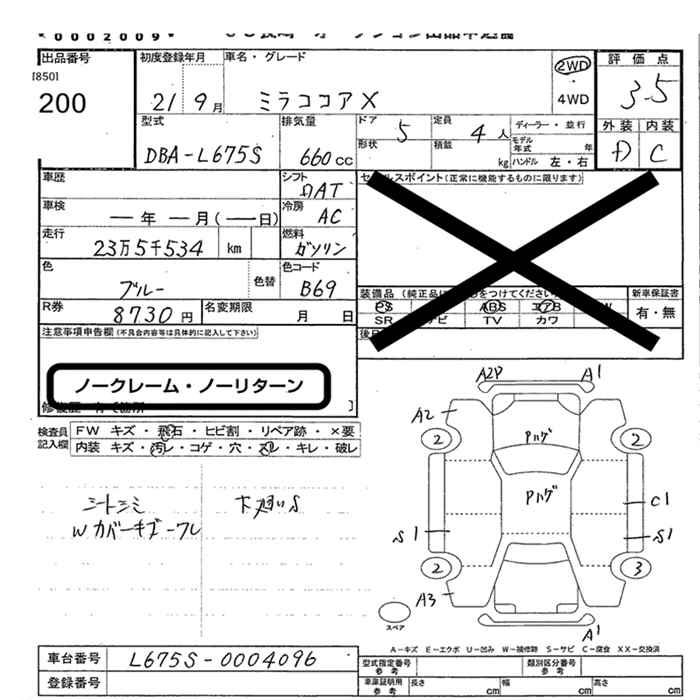 *0002009*
出品番号 初度登録年月 車名・グレード 2WD 評価点
[850]
200 21 9月 ミラココアX 4WD 3.5
型式 排気量 ドア 定員 ディーラー・並行 外装 内装
DBA-L675S 660cc 5 4人 モデル年式 年 D C
形状 積載 kg ハンドル 左・右
車歴 シフト セールスポイント(正常に機能するものに限ります)
DAT
車検 ー年ー月(ー日) 冷房 AC
走行 23万5千534 km 燃料 ガソリン
色 ブルー 色替 色コード B69
装備品 新車保証書
PS ABS エアB
SR ナビ TV カワ 有・無
R券 8730円 名変期限 月 日
注意事項申告欄(不具合内容等は具体的に記入して下さい)
ノークレーム・ノーリターン
検査員 FW キズ・飛石・ヒビ割・リペア跡・×要
記入欄 内装 キズ・汚レ・コゲ・穴・スレ・キレ・破レ
シートシミ 下廻りS
Wカバーキズ
A2P A1
A2
2 Pハゲ 2
Pハゲ
C1
S1 S1
2 3
A3
スペア A1
A-キズ E-エクボ U-凹み W-補修跡 S-サビ C-腐食 XX-交換済
車台番号 L675S-0004096 型式指定番号 参考 類別区分番号 参考
登録番号 車庫証明用 参考 長さ cm 幅 cm 高さ cm